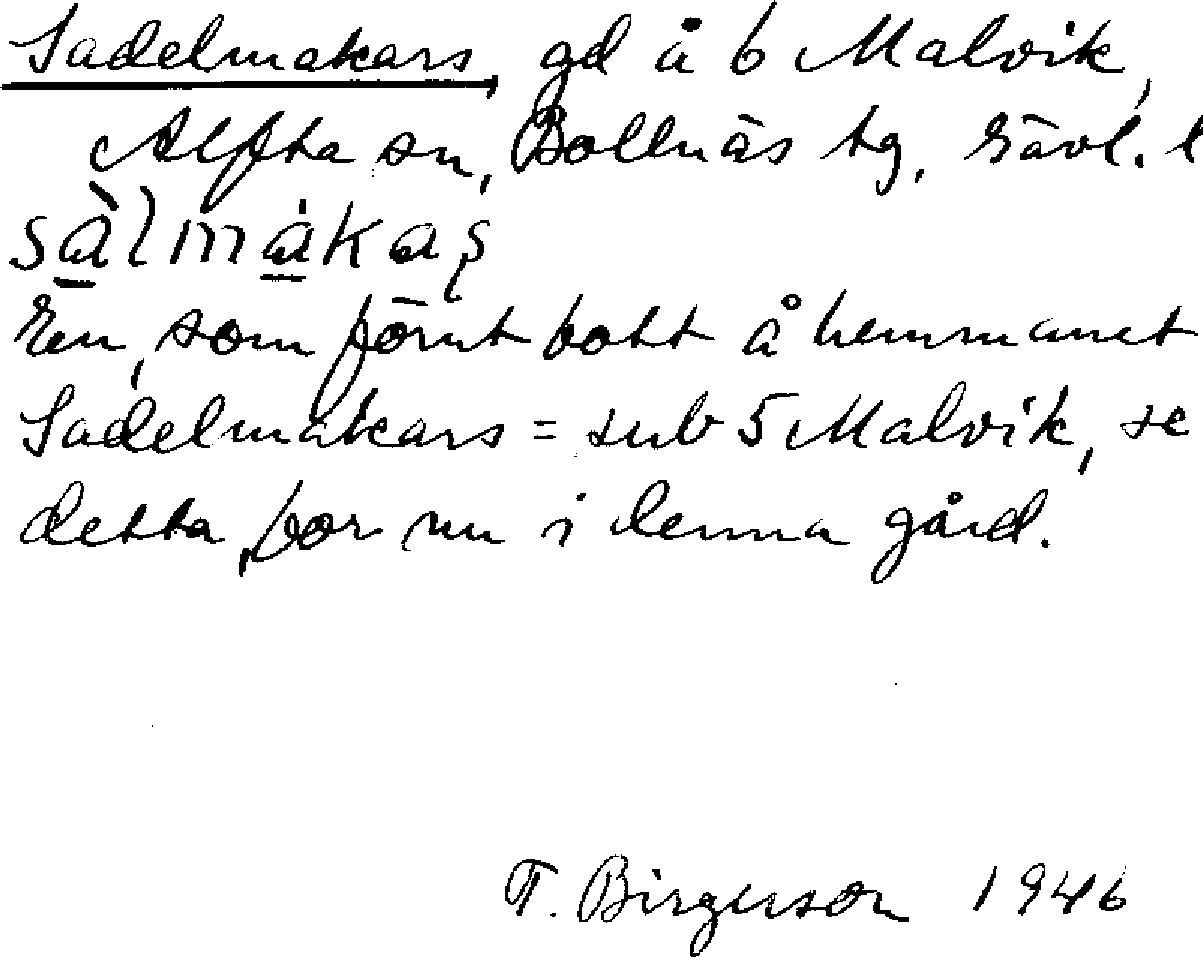 Sadelmakars, gd å 6 Malvik,
Alfta sn, Bollnäs tg, Gävl. l
sà̱lmȧ̱kaʂ
En, som förut bott å hemmanet
Sadelmakars = sub 5 Malvik, se
detta, bor nu i denna gård.
T. Birgerson 1946